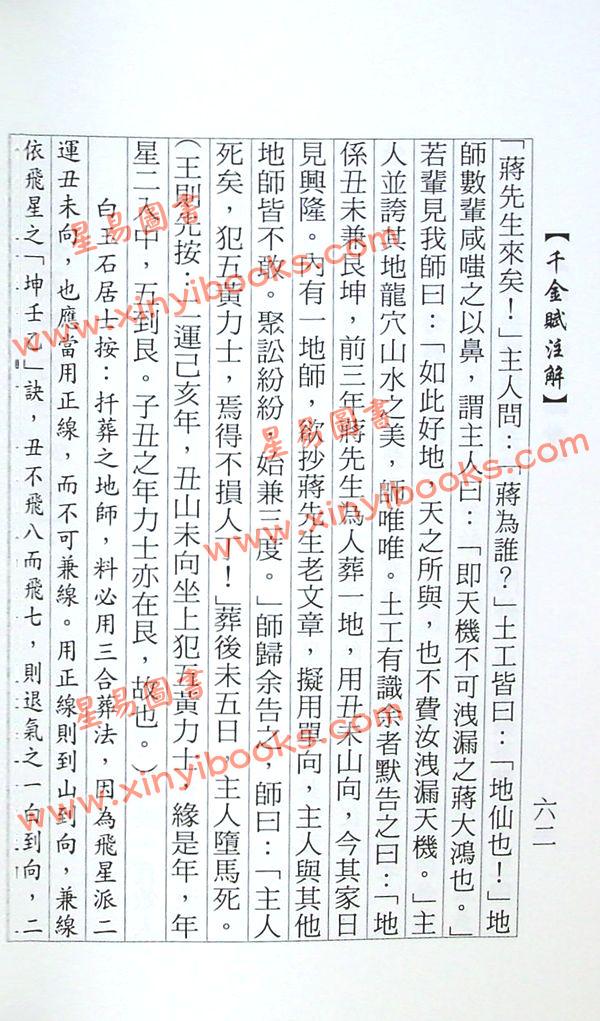 【千金賦注解】
六二
「蔣先生來矣！」主人問：「蔣為誰？」土工皆曰：「地仙也！」地
師數輩咸嗤之以鼻，謂主人曰：「即天機不可洩漏之蔣大鴻也。」
若輩見我師曰：「如此好地，天之所與，也不費汝洩漏天機。」主
人並誇其地龍穴山水之美，師唯唯。土工有識余者默告之曰：「地
係丑未兼艮坤，前三年蔣先生為人葬一地，用丑未山向，今其家日
見興隆。內有一地師，欲抄蔣先生老文章，擬用單向，主人與其他
地師皆不敢。聚訟紛紛，始兼三度。」師歸余告之，師曰：「主人
死矣，犯五黃力士，焉得不損人丁！」葬後未五日，主人墮馬死。
（王則先按：二運己亥年，丑山未向坐上犯五黃力士，緣是年，年
星二入中，五到艮。子丑之年力士亦在艮，故也。）
白玉石居士按：扦葬之地師，料必用三合葬法，因為飛星派二
運丑未向，也應當用正線，而不可兼線。用正線則到山到向，兼線
依飛星之「坤壬乙」訣，丑不飛八而飛七，則退氣之一白到向，二
星易圖書
www.xinyibooks.com
星易圖書
www.xinyibooks.com
星易圖書
www.xinyibooks.com
星易圖書
www.xinyibooks.com